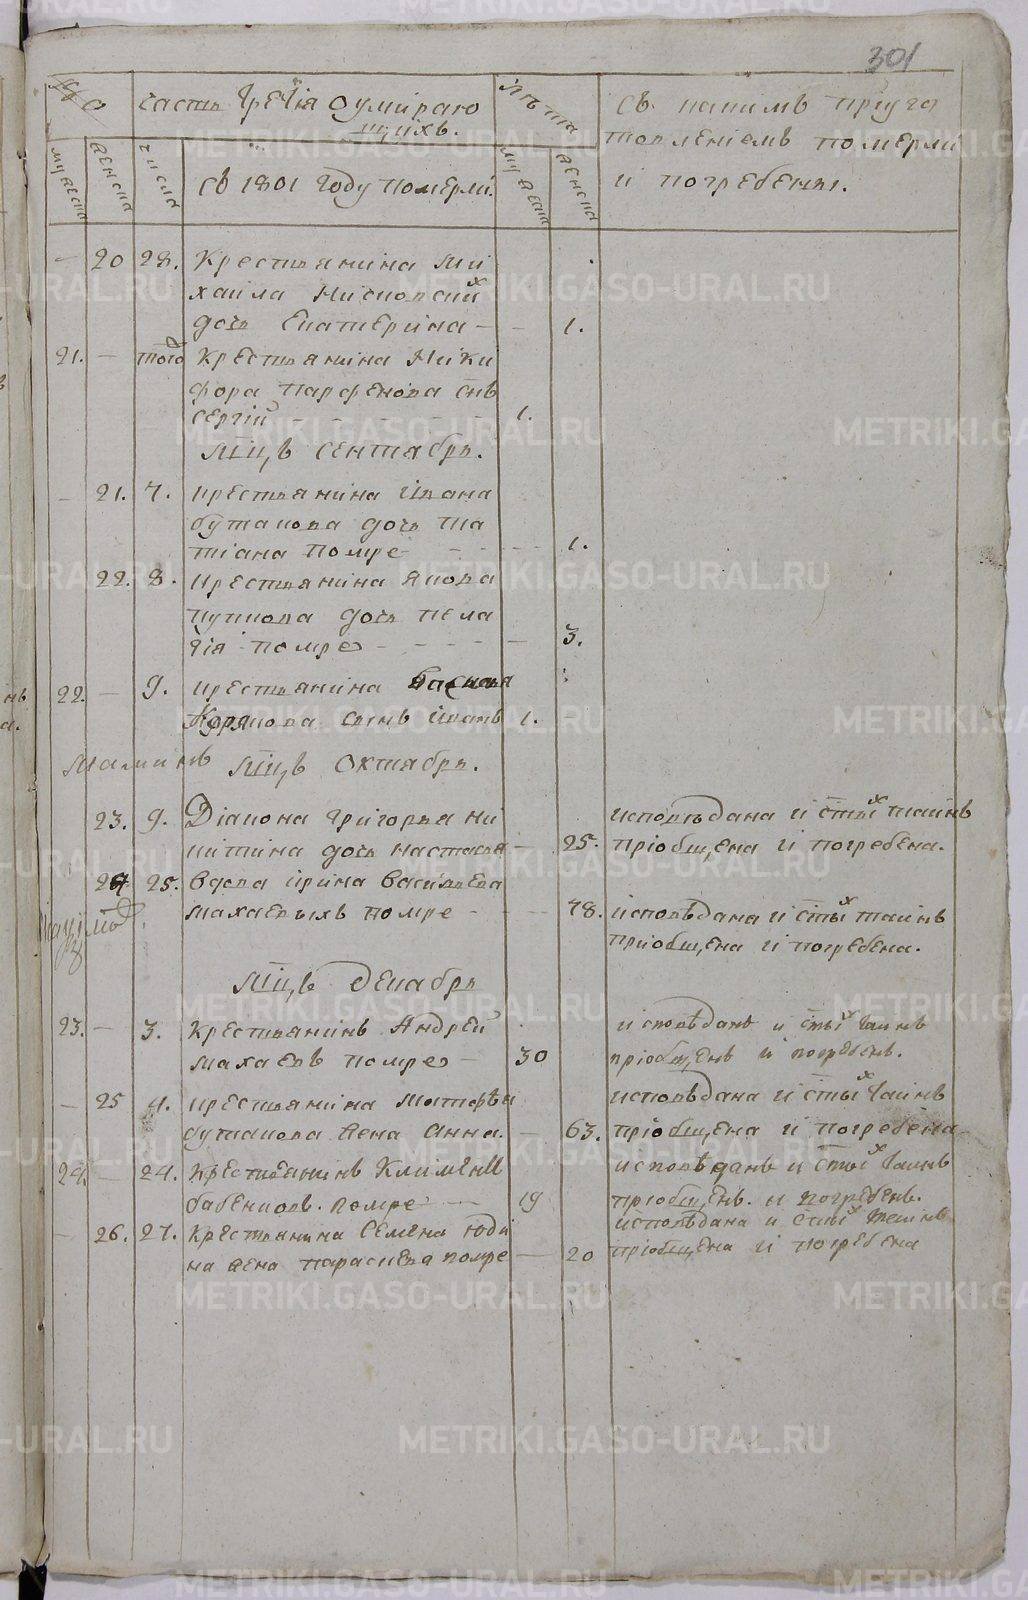 301
часть третїя оумираю
щихъ.
лѣта
съ какимъ приуго
товленїемъ померли
и погребены.
мужеска
женска
числа
въ 1801 году померли.
мужеска
женска
— 20 28. Крестьянина Ми
хаила Нисковских
дочь Екатерина — — 1.
21. — того Крестьянина Ники
фора Парфенова снъ
Сергїй 1.
Мцъ Сентябрь.
— 21. 7. крестьянина Ивана
бутакова дочь Та
тїана помре 1.
22. 8. крестьянина Якова
Пупкова дочь Пела
гїя помре — 3.
22. — 9. крестьянина
Корякова сынъ Иванъ 1.
Мцъ Октябрь.
23. 9. Дїакона Григорья Ни
китина дочь Настасья — 25.
исповѣдана и стых таинъ
прїобщена и погребена.
24 25. Вдова Ирина Васильева
Махаевыхъ помре — 78.
исповѣдана и стых таинъ
прїобщена и погребена.
Мцъ Декабрь
23. — 3. Крестьянинъ Андрей
Махаевъ помре — 30
исповѣданъ и стых таинъ
прїобщенъ и погребенъ.
— 25 4. крестьянина Матфѣя
бутакова жена Анна. — 63.
исповѣдана и стых таинъ
прїобщена и погребена
24. — 24. крестьянинъ Климент
бабенковъ. помре — 19
исповѣданъ и стых таинъ
прїобщенъ. и погребенъ.
— 26. 27. Крестьянина Семена Юди
на жена Парасковья помре — 20
исповѣдана и стых таинъ
прїобщена и погребена
METRIKI.GASO-URAL.RU